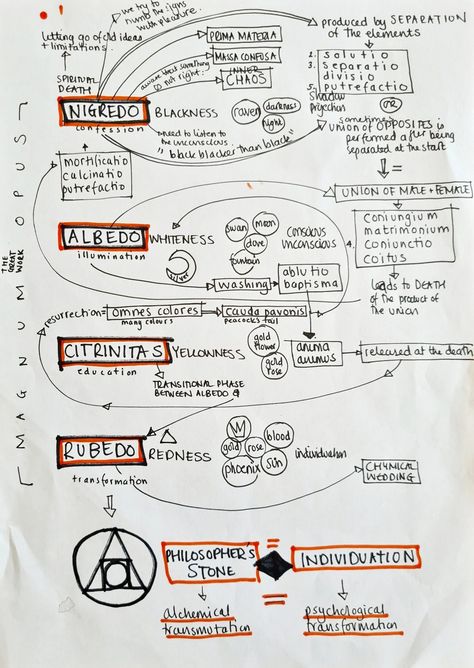 we try to
numb the signs
with pleasure.
letting go of old ideas
+ limitations.
SPIRITUAL
DEATH
PRIMA MATERIA
MASSA CONFUSA
aware that something
is not right.
INNER
CHAOS
produced by SEPARATION
of the elements
1. solutio
2. separatio
3. divisio
5. putrefactio
shadow
projection
OR
NIGREDO
BLACKNESS
confession
raven
darkness
night
need to listen to
the unconscious
"black blacker than black"
sometimes
UNION of OPPOSITES is
performed after being
separated at the start
=
mortificatio
calcinatio
putrefactio
UNION OF MALE + FEMALE
4.
coniungium
matrimonium
coniunctio
coitus
ALBEDO
WHITENESS
illumination
swan
moon
dove
fountain
conscious
unconscious
silver
washing
ablutio
baptisma
leads to DEATH
of the product of
the union
resurrection=
omnes colores
many colours
cauda pavonis
peacocks tail
CITRINITAS
YELLOWNESS
education
gold
flower
gold
rose
anima
animus
released at the death
TRANSITIONAL PHASE
BETWEEN ALBEDO &
RUBEDO
REDNESS
transformation
gold
rose
blood
phoenix
sun
individuation
CHYMICAL
WEDDING
MAGNUM OPUS
THE
GREAT
WORK
PHILOSOPHER'S
STONE
=
=
INDIVIDUATION
alchemical
transmutation
psychological
transformation